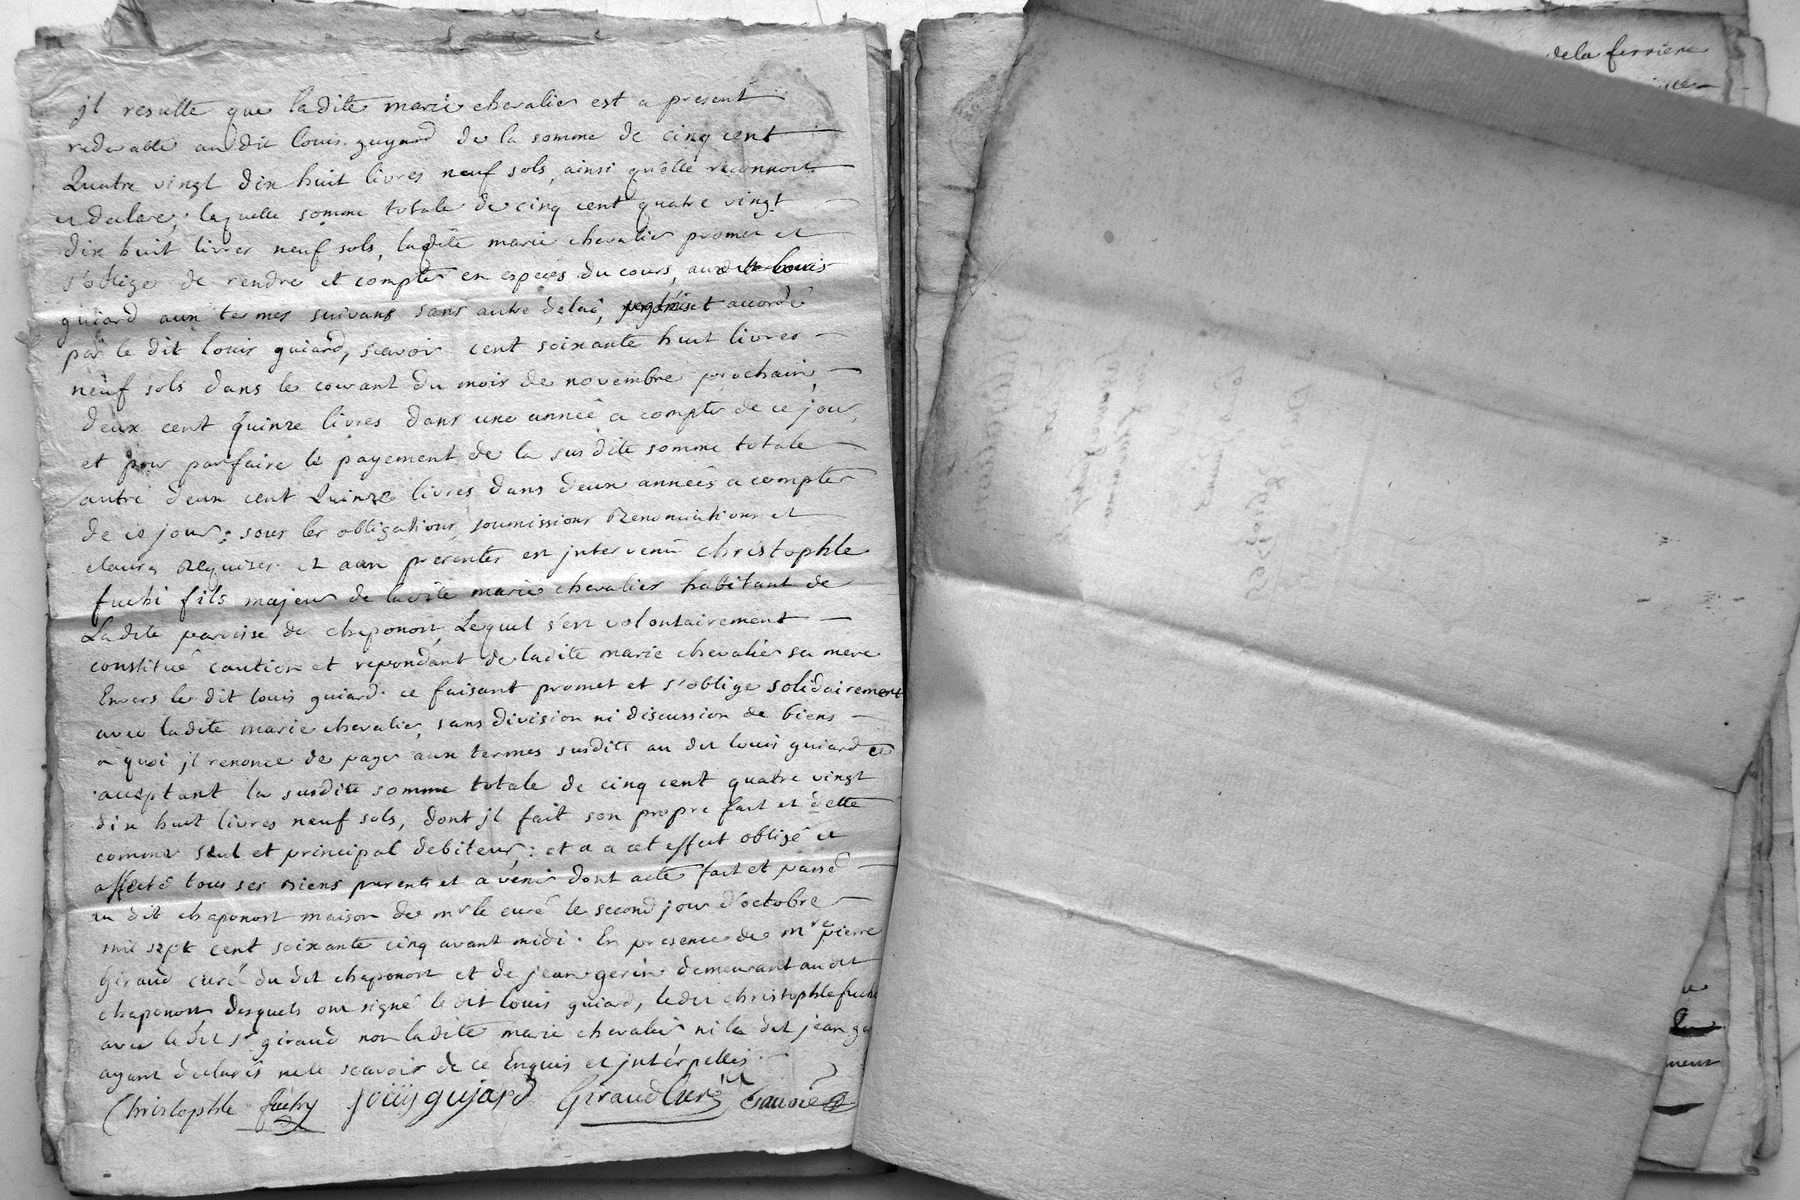 jl resulte que ladite marie chevalier est a present
redevable audit louis guyard de la somme de cinq cent
Quatre vingt dix huit livres neuf sols, ainsi qu'elle reconnoit
et declare; laquelle somme totale de cinq cent quatre vingt
dix huit livres neuf sols, ladite marie chevalier promet et
s'oblige de rendre et compter en especes du cours, audit louis
guiard aux termes suivans sans autre delai, accordé
par le dit louis guiard, scavoir cent soixante huit livres
neuf sols dans le courant du mois de novembre prochain,
deux cent quinze livres dans une année a compter de ce jour,
et pour parfaire le payement de la susdite somme totale
autre deux cent Quinze livres dans deux années a compter
de ce jour; sous les obligations, soumissions Renonciations et
clauses Requises. et aux presentes est jntervenu christophle
fuchi fils majeur de ladite marie chevalier habitant de
Ladite paroisse de chaponost, Lequel s'est volontairement
constitué caution et repondant de ladite marie chevalier sa mere
Envers le dit louis guiard. ce faisant promet et s'oblige solidairement
avec ladite marie chevalier, sans division ni discussion de biens
a quoi jl renonce de payer aux termes susdits au dit louis guiard
acceptant la susdite somme totale de cinq cent quatre vingt
dix huit livres neuf sols, dont jl fait son propre fait et dette
comme seul et principal debiteur; et a a cet effect obligé et
affecté tous ses Biens presents et a venir dont acte fait et passé
au dit chaponost maison de mr le curé le second jour d'octobre
mil sept cent soixante cinq avant midi. En presence de mre pierre
Giraud curé du dit chaponost et de jean gerin demeurant audit
chaponost, desquels ont signé ledit louis guiard, ledit christophle fuchi
avec ledit sr giraud non ladite marie chevalier ni le dit jean
ayant declarés ne le scavoir de ce Enquis et jnterpellés.
Christophle fuchy louis gujard Giraud Curé
dela ferriere